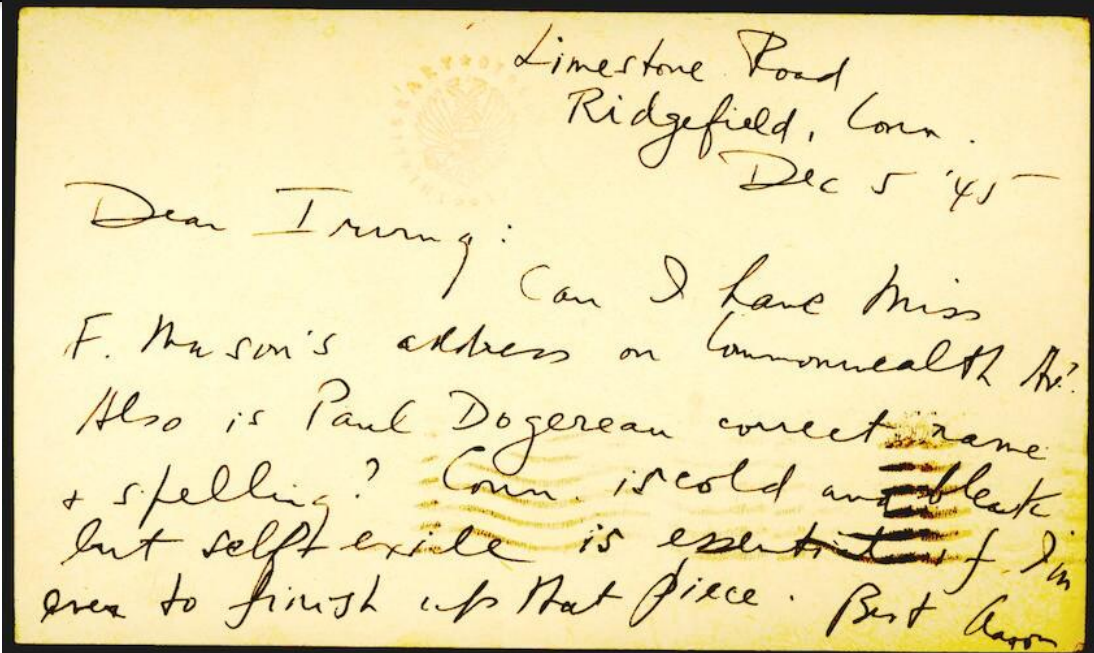 Limestone Road
Ridgefield, Conn.
Dec 5 '45
Dear Irving:
Can I have Miss
F. Mason's address on Commonwealth Av?
Also is Paul Dogereau correct name
& spelling? Conn. is cold and bleak
but self exile is essential if I'm
ever to finish up that piece. Best Aaron